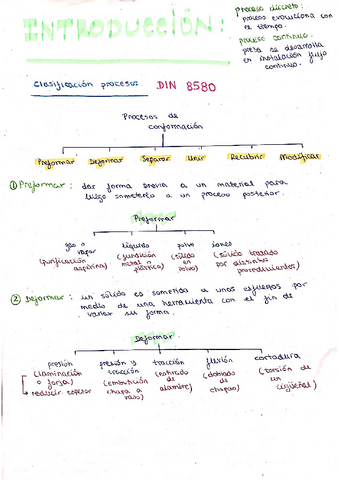 INTRODUCCIÓN:
proceso discreto:
proceso evoluciona con
el tiempo.
proceso continuo:
se desarrolla
en instalación flujo
continuo.
Clasificación procesos DIN 8580
Procesos de
conformación
Preformar Deformar Separar Unir Recubrir Modificar
① Preformar: dar forma previa a un material para
luego someterlo a un proceso posterior.
Preformar
gas o vapor
(purificación
aspirina)
líquidos
(fundición
metal o
plástico)
polvo
(sólido
en
polvo)
iones
(sólido tratado
por distintos
procedimientos)
② Deformar: un sólido es sometido a unos esfuerzos por
medio de una herramienta con el fin de
variar su forma.
Deformar
presión
(laminación
o forja)
→ reducir espesor
presión y
tracción
(embutición
chapa a
vaso)
tracción
(estirado
de
alambre)
flexión
(doblado
de
chapas)
cortadura
(torsión de
un
cigüeñal)